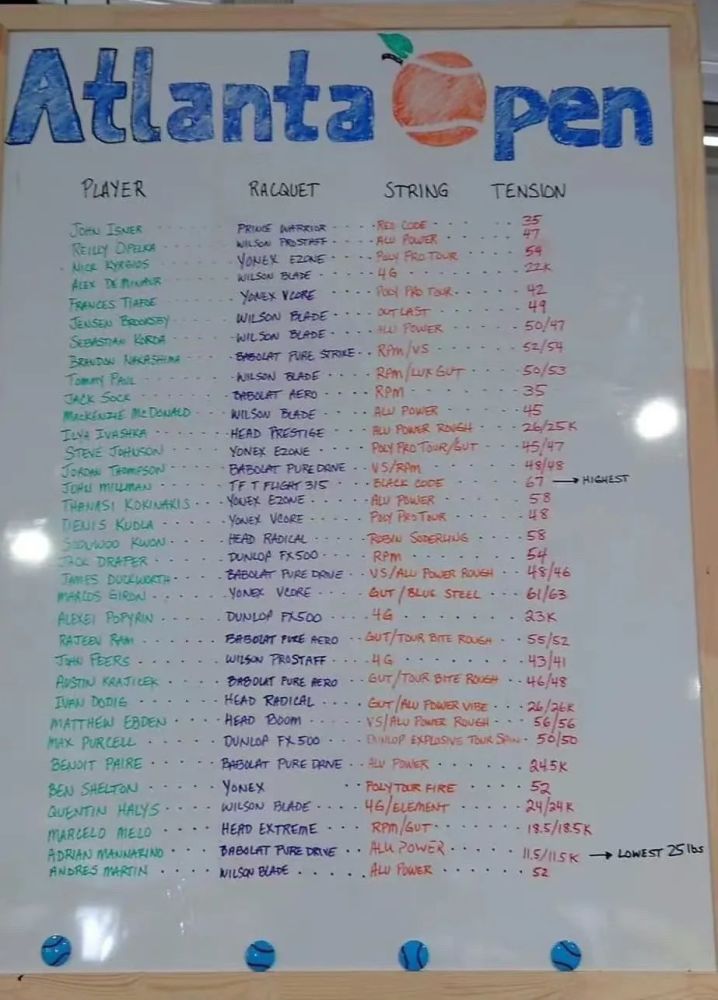 Atlanta Open
PLAYER RACQUET STRING TENSION
JOHN ISNER PRINCE WARRIOR RED CODE 35
REILLY OPELKA WILSON PROSTAFF ALU POWER 47
NICK KYRGIOS YONEX EZONE POLY PRO TOUR 54
ALEX DE MINAUR WILSON BLADE 4G 22K
FRANCES TIAFOE YONEX VCORE POLY PRO TOUR 42
JENSEN BROOKSBY WILSON BLADE OUTLAST 49
SEBASTIAN KORDA WILSON BLADE ALU POWER 50/47
BRANDON NAKASHIMA BABOLAT PURE STRIKE RPM/VS 52/54
TOMMY PAUL WILSON BLADE RPM/LUX GUT 50/53
JACK SOCK BABOLAT AERO RPM 35
MACKENZIE MCDONALD WILSON BLADE ALU POWER 45
ILYA IVASHKA HEAD PRESTIGE ALU POWER ROUGH 26/25K
STEVE JOHNSON YONEX EZONE POLY PRO TOUR/GUT 45/47
JORDAN THOMPSON BABOLAT PURE DRIVE VS/RPM 48/48
JOHN MILLMAN TF T FLIGHT 315 BLACK CODE 67 → HIGHEST
THANASI KOKINAKIS YONEX EZONE ALU POWER 58
DENIS KUDLA YONEX VCORE POLY PRO TOUR 48
SOONWOO KWON HEAD RADICAL ROBIN SODERLING 58
JACK DRAPER DUNLOP FX500 RPM 54
JAMES DUCKWORTH BABOLAT PURE DRIVE VS/ALU POWER ROUGH 48/46
MARCOS GIRON YONEX VCORE GUT/BLUE STEEL 61/63
ALEXEI POPYRIN DUNLOP FX500 4G 23K
RAJEEV RAM BABOLAT PURE AERO GUT/TOUR BITE ROUGH 55/52
JOHN PEERS WILSON PROSTAFF 4G 43/41
AUSTIN KRAJICEK BABOLAT PURE AERO GUT/TOUR BITE ROUGH 46/48
IVAN DODIG HEAD RADICAL GUT/ALU POWER VIBE 26/26K
MATTHEW EBDEN HEAD BOOM VS/ALU POWER ROUGH 56/56
MAX PURCELL DUNLOP FX500 DUNLOP EXPLOSIVE TOUR SPIN 50/50
BENOIT PAIRE BABOLAT PURE DRIVE ALU POWER 24.5K
BEN SHELTON YONEX POLYTOUR FIRE 52
QUENTIN HALYS WILSON BLADE 4G/ELEMENT 24/24K
MARCELO MELO HEAD EXTREME RPM/GUT 18.5/18.5K
ADRIAN MANNARINO BABOLAT PURE DRIVE ALU POWER 11.5/11.5K → LOWEST 25 lbs
ANDRES MARTIN WILSON BLADE ALU POWER 52